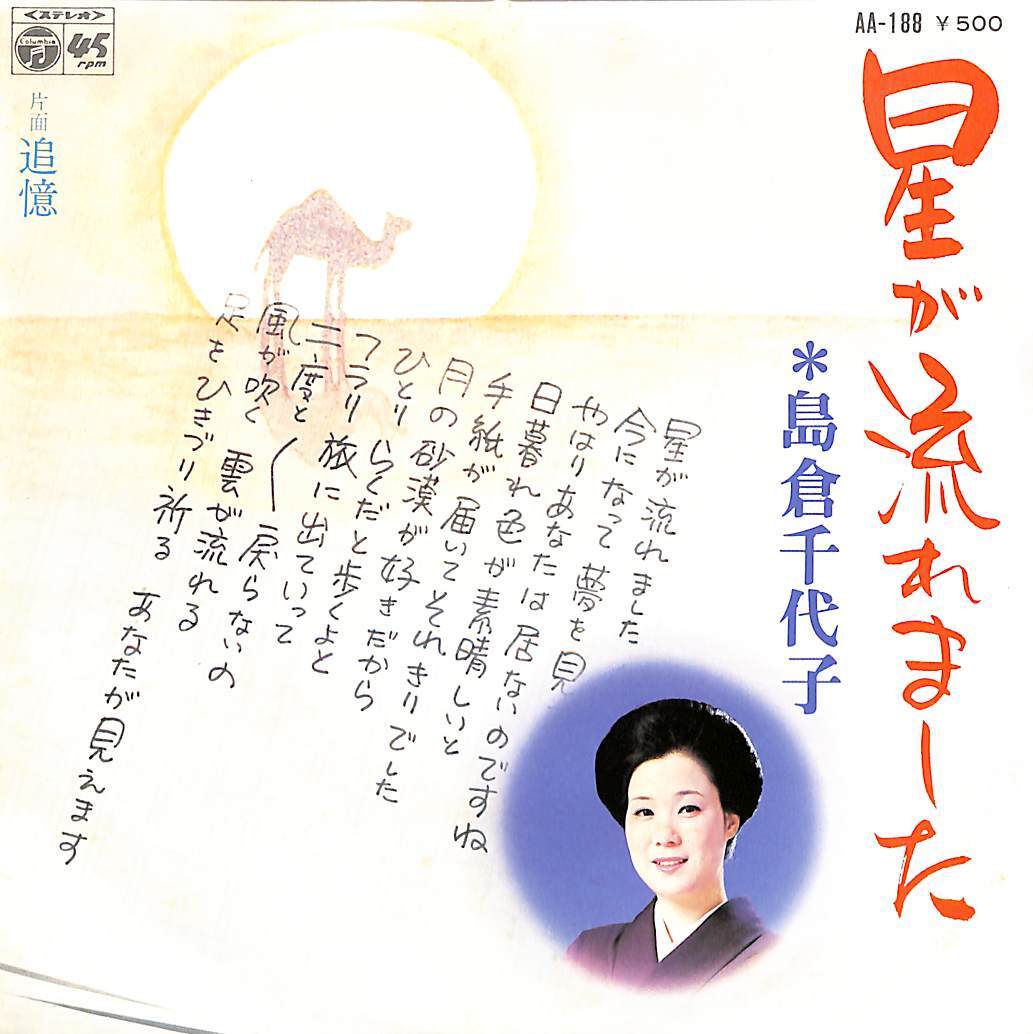 <ステレオ>
Columbia
45
rpm
AA-188 ¥500
片面
追憶
星が流れました
*島倉千代子
星が流れました
今になって夢を見
やはりあなたは居ないのですね
日暮れ色が素晴しいと
手紙が届いてそれきりでした
月の砂漠が好きだから
ひとり らくだと歩くよと
フラリ旅に出ていって
二度と 戻らないの
風が吹く 雲が流れる
足をひきづり祈る あなたが見えます